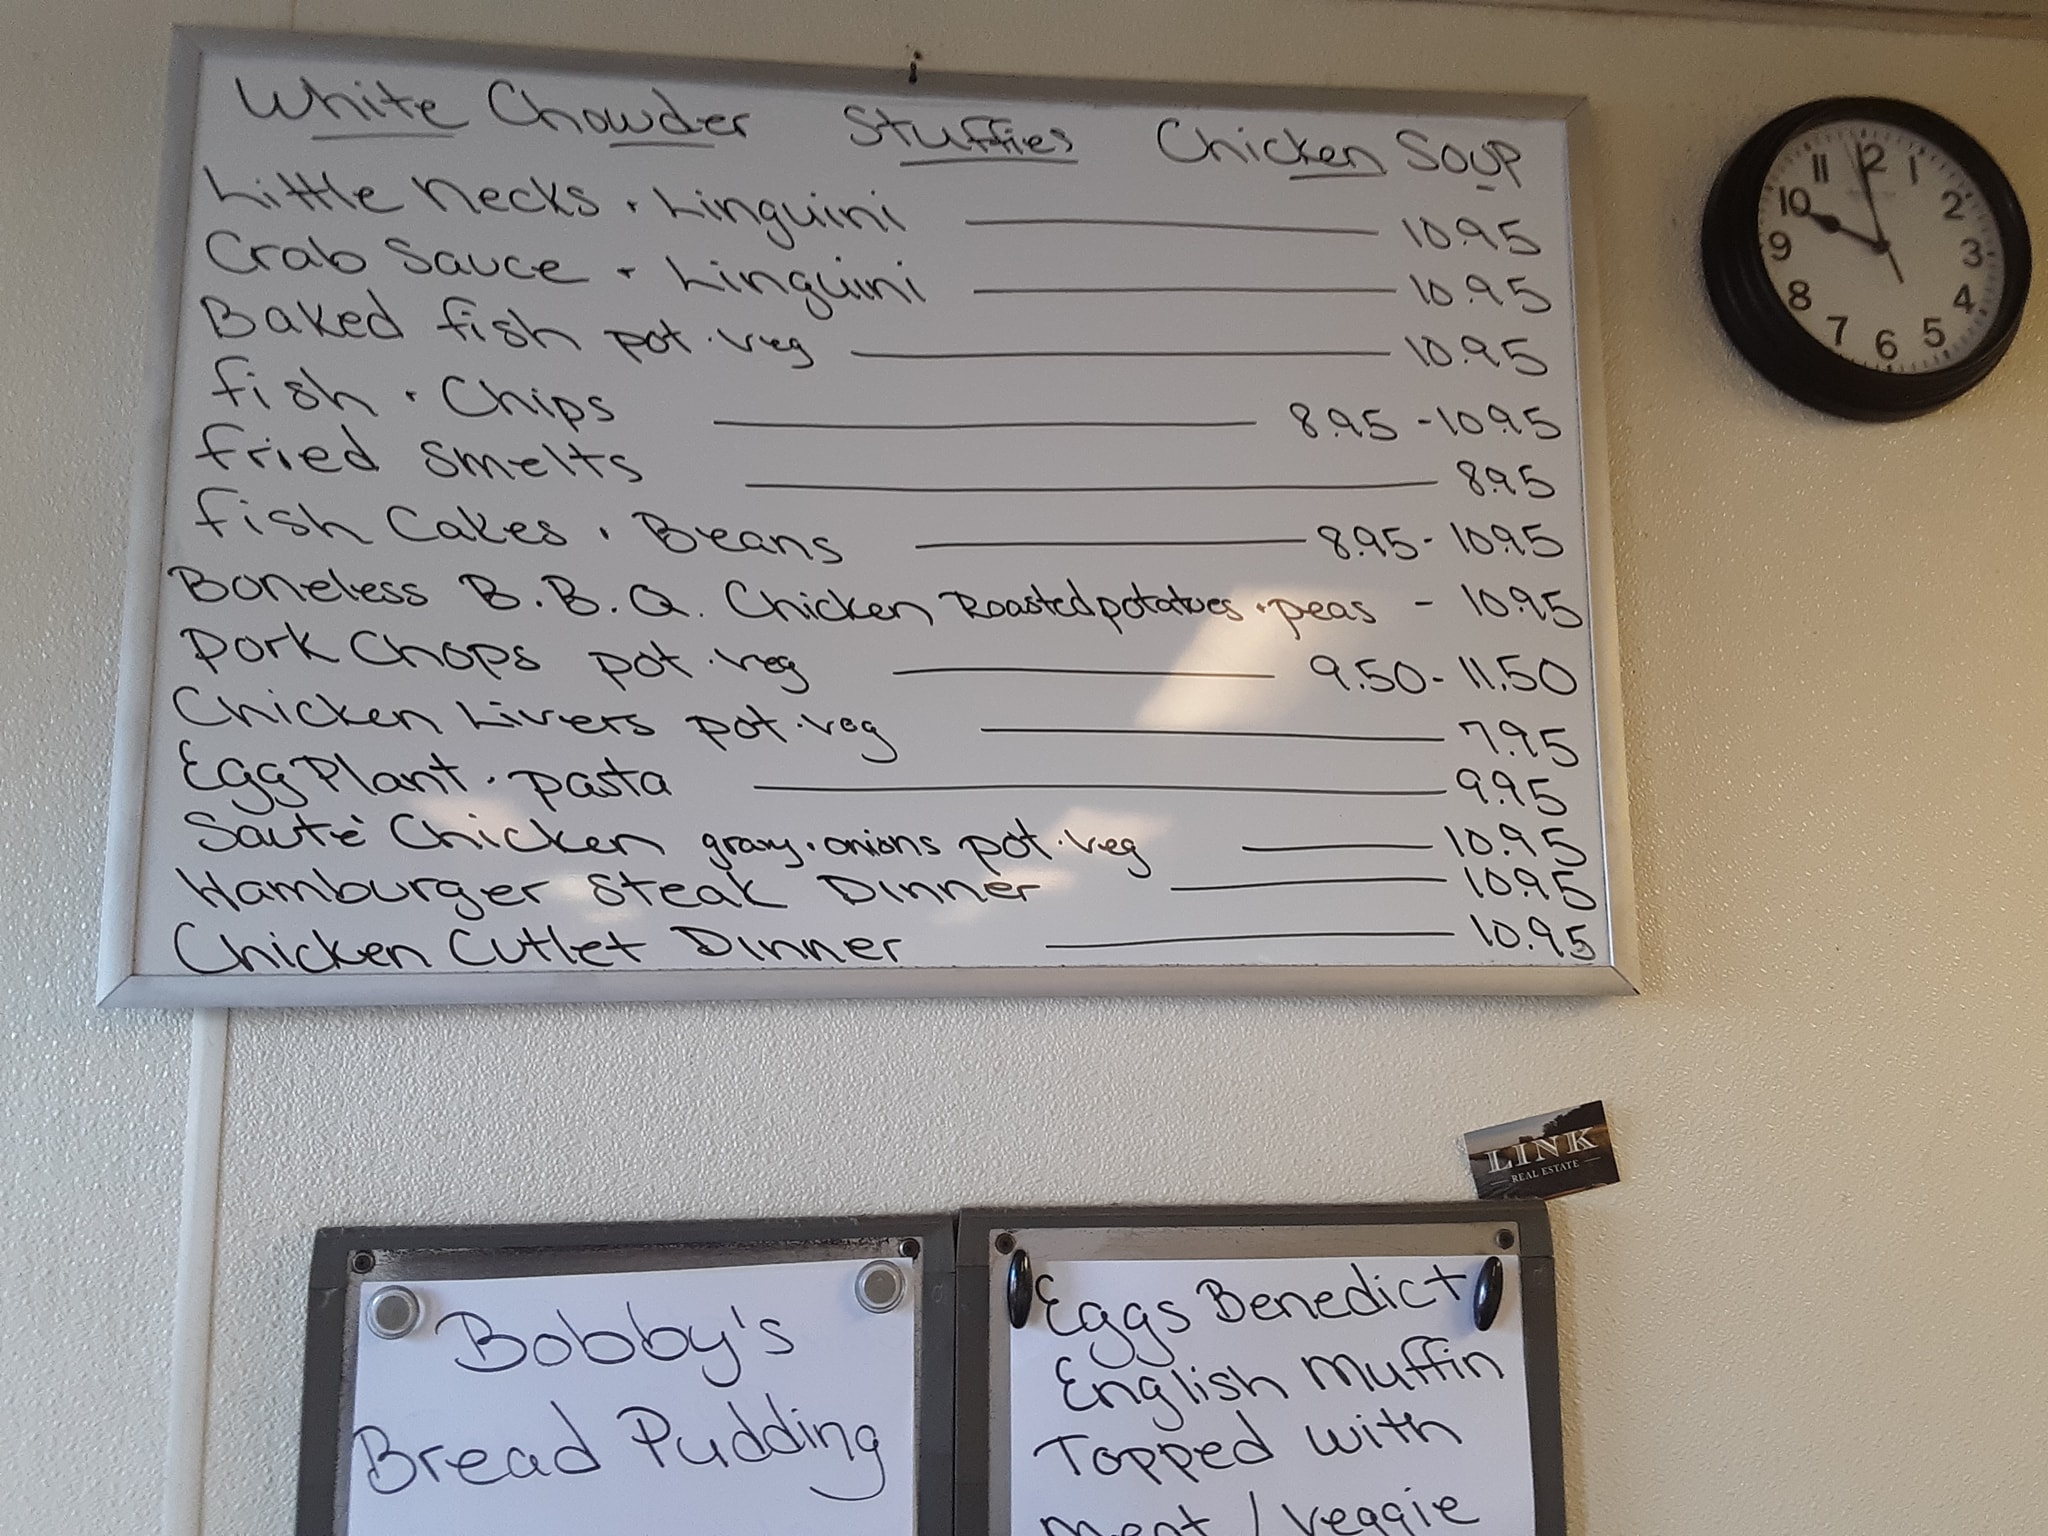 White Chowder Stuffies Chicken Soup
Little Necks · Linguini 10.95
Crab Sauce · Linguini 10.95
Baked fish pot · veg 10.95
fish · Chips 8.95 - 10.95
fried smelts 8.95
fish Cakes · Beans 8.95 - 10.95
Boneless B.B.Q. Chicken Roasted potatoes · peas - 10.95
Pork Chops pot · veg 9.50 - 11.50
Chicken Livers pot · veg 7.95
EggPlant · pasta 9.95
Sauté Chicken gravy · onions pot · veg 10.95
Hamburger Steak Dinner 10.95
Chicken Cutlet Dinner 10.95
12
1
2
3
4
5
6
7
8
9
10
11
LINK
REAL ESTATE
Bobby's
Bread Pudding
Eggs Benedict
English Muffin
Topped with
Meat / Veggie